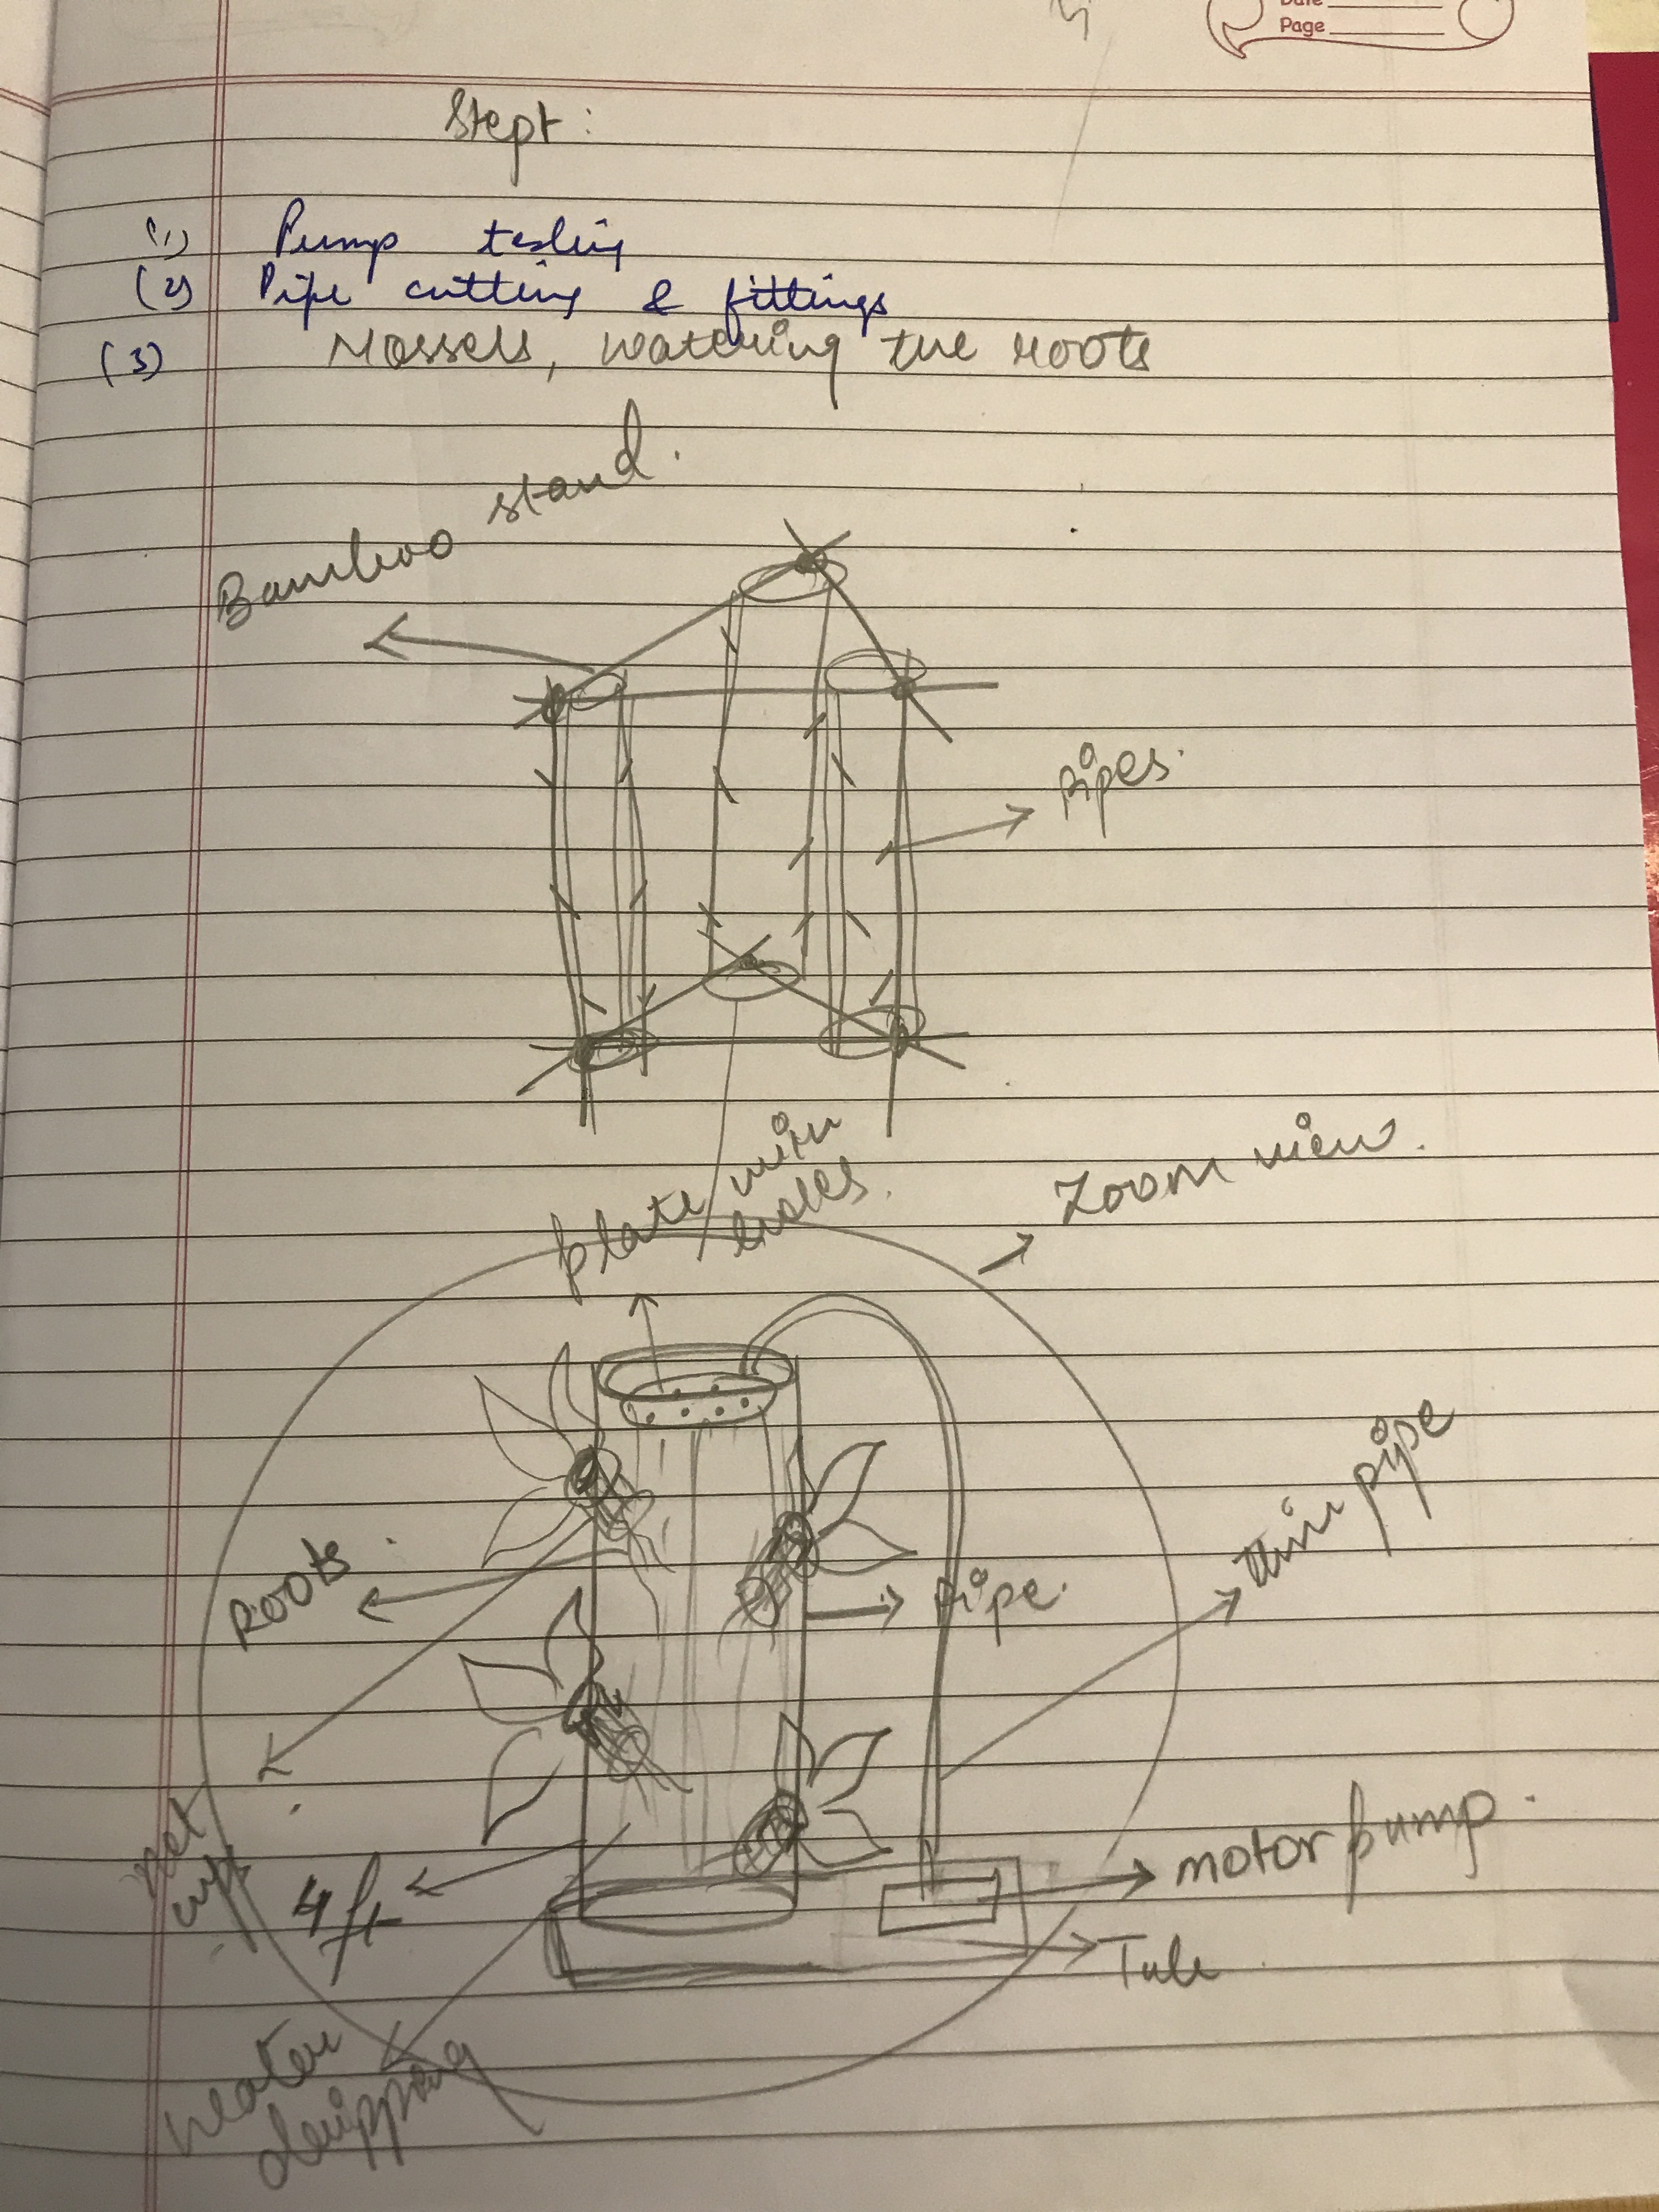 Date
Page
Stept:
(1) Pump testing
(2) Pipe cutting & fittings
(3) Nossels, watering the roots
Bamboo stand.
Pipes.
plate with
holes.
Zoom view.
thin pipe
Roots.
Pipe.
net
cup
4 ft
motor pump.
Tub
water
dripping